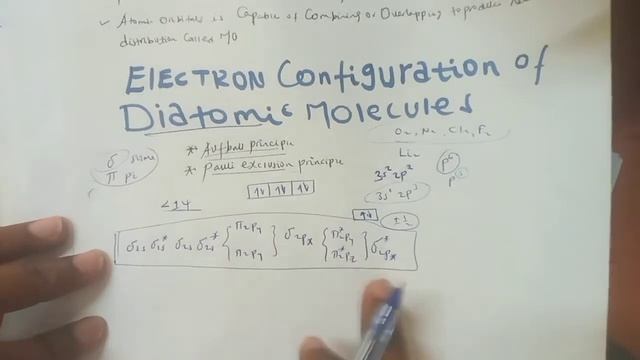 ✓ Atomic orbitals is Capable of Combining or Overlapping to produce new
distribution Called MO
ELECTRON Configuration of
Diatomic Molecules
* Aufbau principle
* Pauli exclusion principle
σ sigma
π pi
O₂, N₂, Cl₂, F₂
Li₂
3s² 2p²
3s² 2p³
p⁶
↑↓ ↑↓ ↑↓
<14
↑↓
σ₁s σ₁s* σ₂s σ₂s* { π2py π2py } σ2px { π*2py π*2pz } σ*2px